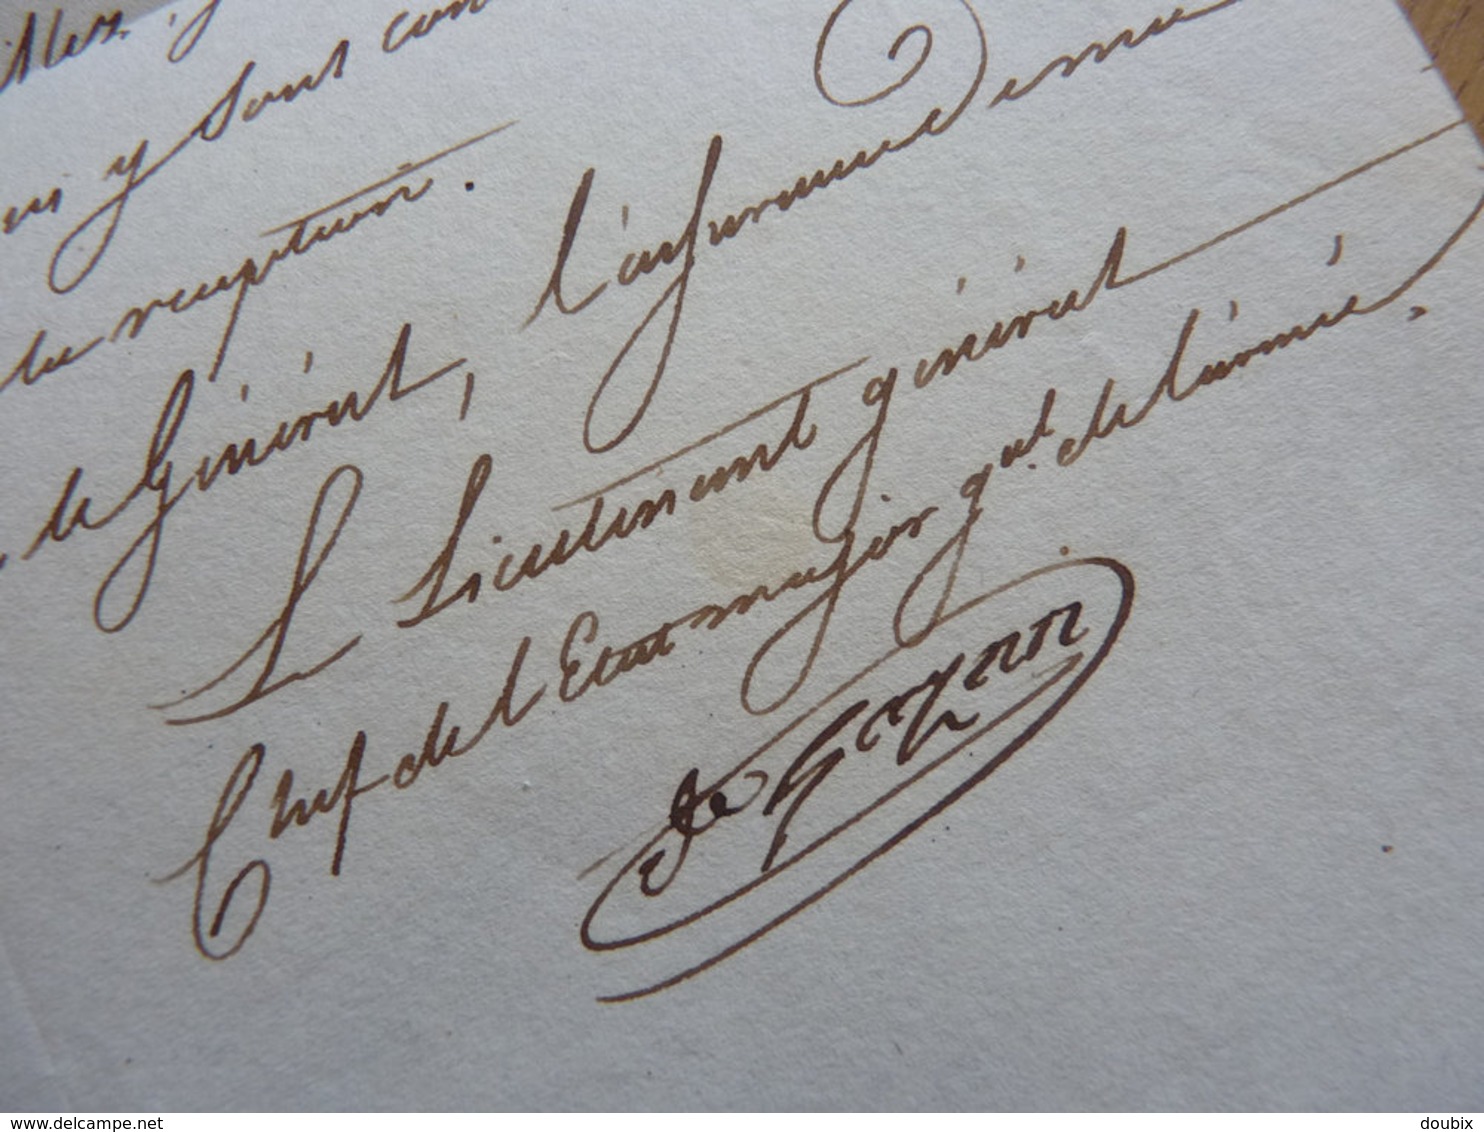 y sont con
reception.
le Général, l'assurance de ma
Le Lieutenant général
Chef de l'Etat major gal. de l'armée,
delcampe.net
doubix